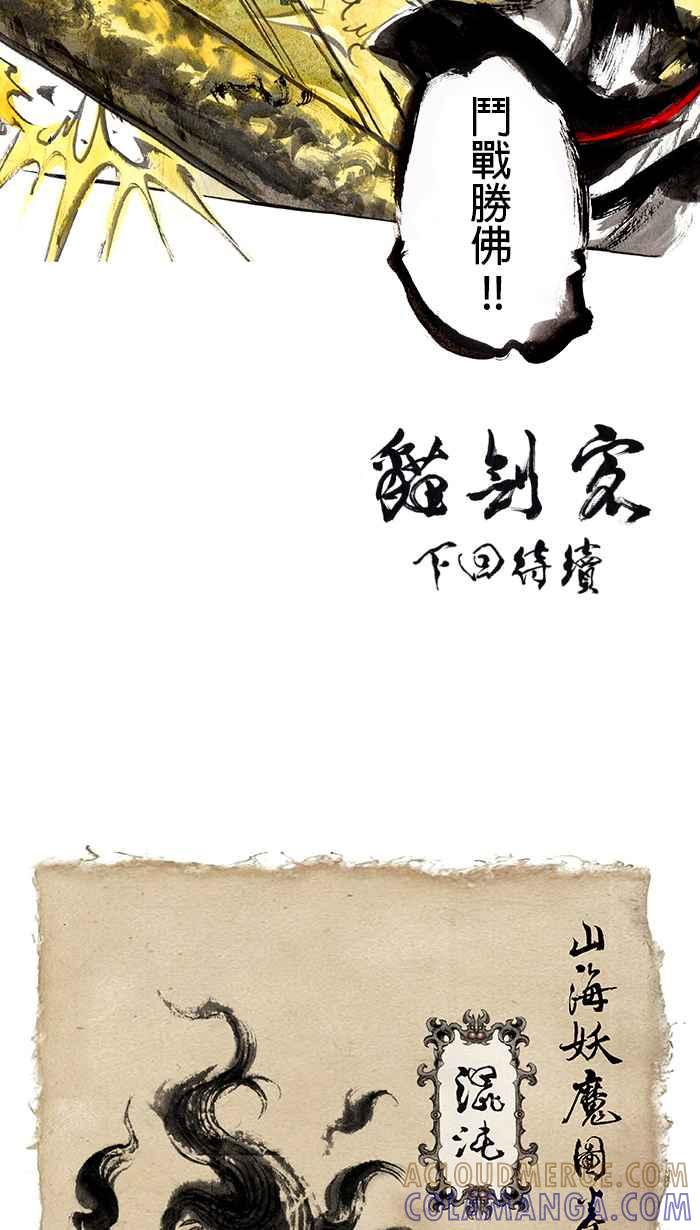 鬥戰勝佛!!
貓劍客
下回待續
山海妖魔圖
混沌
ACLOUDMERGE.COM
COLAMANGA.COM